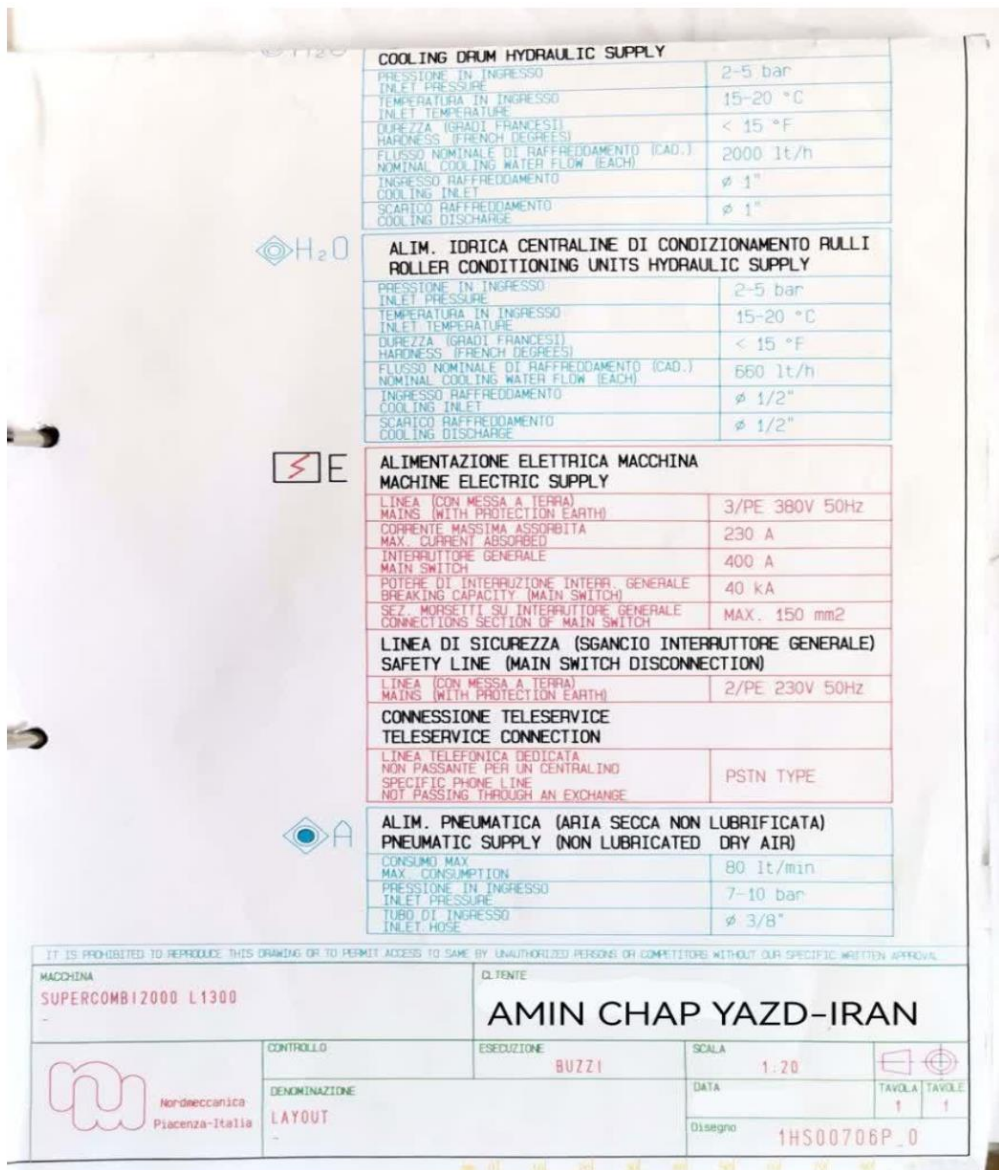 H2O
COOLING DRUM HYDRAULIC SUPPLY
PRESSIONE IN INGRESSO
INLET PRESSURE
2-5 bar
TEMPERATURA IN INGRESSO
INLET TEMPERATURE
15-20 °C
DUREZZA (GRADI FRANCESI)
HARDNESS (FRENCH DEGREES)
< 15 °F
FLUSSO NOMINALE DI RAFFREDDAMENTO (CAD.)
NOMINAL COOLING WATER FLOW (EACH)
2000 lt/h
INGRESSO RAFFREDDAMENTO
COOLING INLET
ø 1"
SCARICO RAFFREDDAMENTO
COOLING DISCHARGE
ø 1"
H2O
ALIM. IDRICA CENTRALINE DI CONDIZIONAMENTO RULLI
ROLLER CONDITIONING UNITS HYDRAULIC SUPPLY
PRESSIONE IN INGRESSO
INLET PRESSURE
2-5 bar
TEMPERATURA IN INGRESSO
INLET TEMPERATURE
15-20 °C
DUREZZA (GRADI FRANCESI)
HARDNESS (FRENCH DEGREES)
< 15 °F
FLUSSO NOMINALE DI RAFFREDDAMENTO (CAD.)
NOMINAL COOLING WATER FLOW (EACH)
660 lt/h
INGRESSO RAFFREDDAMENTO
COOLING INLET
ø 1/2"
SCARICO RAFFREDDAMENTO
COOLING DISCHARGE
ø 1/2"
E
ALIMENTAZIONE ELETTRICA MACCHINA
MACHINE ELECTRIC SUPPLY
LINEA (CON MESSA A TERRA)
MAINS (WITH PROTECTION EARTH)
3/PE 380V 50Hz
CORRENTE MASSIMA ASSORBITA
MAX. CURRENT ABSORBED
230 A
INTERRUTTORE GENERALE
MAIN SWITCH
400 A
POTERE DI INTERRUZIONE INTERR. GENERALE
BREAKING CAPACITY (MAIN SWITCH)
40 kA
SEZ. MORSETTI SU INTERRUTTORE GENERALE
CONNECTIONS SECTION OF MAIN SWITCH
MAX. 150 mm2
LINEA DI SICUREZZA (SGANCIO INTERRUTTORE GENERALE)
SAFETY LINE (MAIN SWITCH DISCONNECTION)
LINEA (CON MESSA A TERRA)
MAINS (WITH PROTECTION EARTH)
2/PE 230V 50Hz
CONNESSIONE TELESERVICE
TELESERVICE CONNECTION
LINEA TELEFONICA DEDICATA
NON PASSANTE PER UN CENTRALINO
SPECIFIC PHONE LINE
NOT PASSING THROUGH AN EXCHANGE
PSTN TYPE
A
ALIM. PNEUMATICA (ARIA SECCA NON LUBRIFICATA)
PNEUMATIC SUPPLY (NON LUBRICATED DRY AIR)
CONSUMO MAX
MAX. CONSUMPTION
80 lt/min
PRESSIONE IN INGRESSO
INLET PRESSURE
7-10 bar
TUBO DI INGRESSO
INLET HOSE
ø 3/8"
IT IS PROHIBITED TO REPRODUCE THIS DRAWING OR TO PERMIT ACCESS TO SAME BY UNAUTHORIZED PERSONS OR COMPETITORS WITHOUT OUR SPECIFIC WRITTEN APPROVAL
MACCHINA
SUPERCOMBI2000 L1300
-
CLIENTE
AMIN CHAP YAZD-IRAN
Nordmeccanica
Piacenza-Italia
CONTROLLO
ESECUZIONE
BUZZI
SCALA
1:20
DENOMINAZIONE
LAYOUT
-
DATA
TAVOLA
1
TAVOLE
1
Disegno
1HS00706P_0